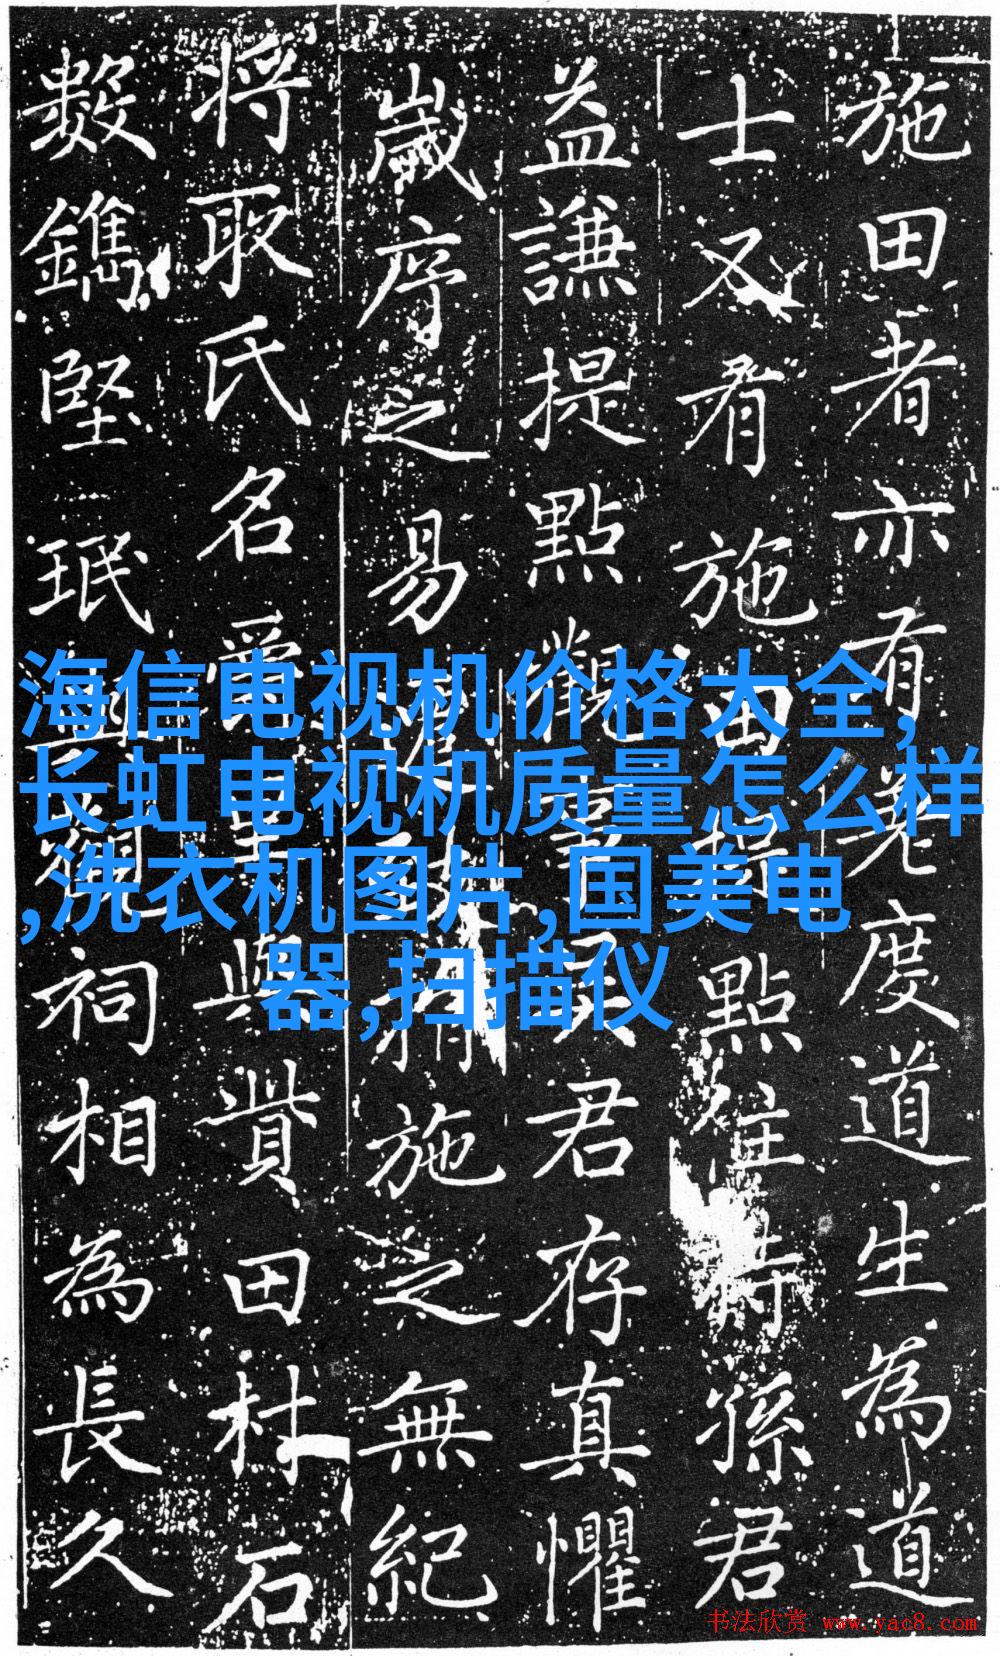 施田者亦有度道生為道
士又有施田提點住持孫君
益謙提點觀事君存真懼
歲序之易施之無紀
將取氏名爵里與貲田杜石
數鐫堅珉與觀祠相為長久
海信电视机价格大全,
长虹电视机质量怎么样
,洗衣机图片,国美电
器,扫描仪
书法欣赏 www.yac8.com